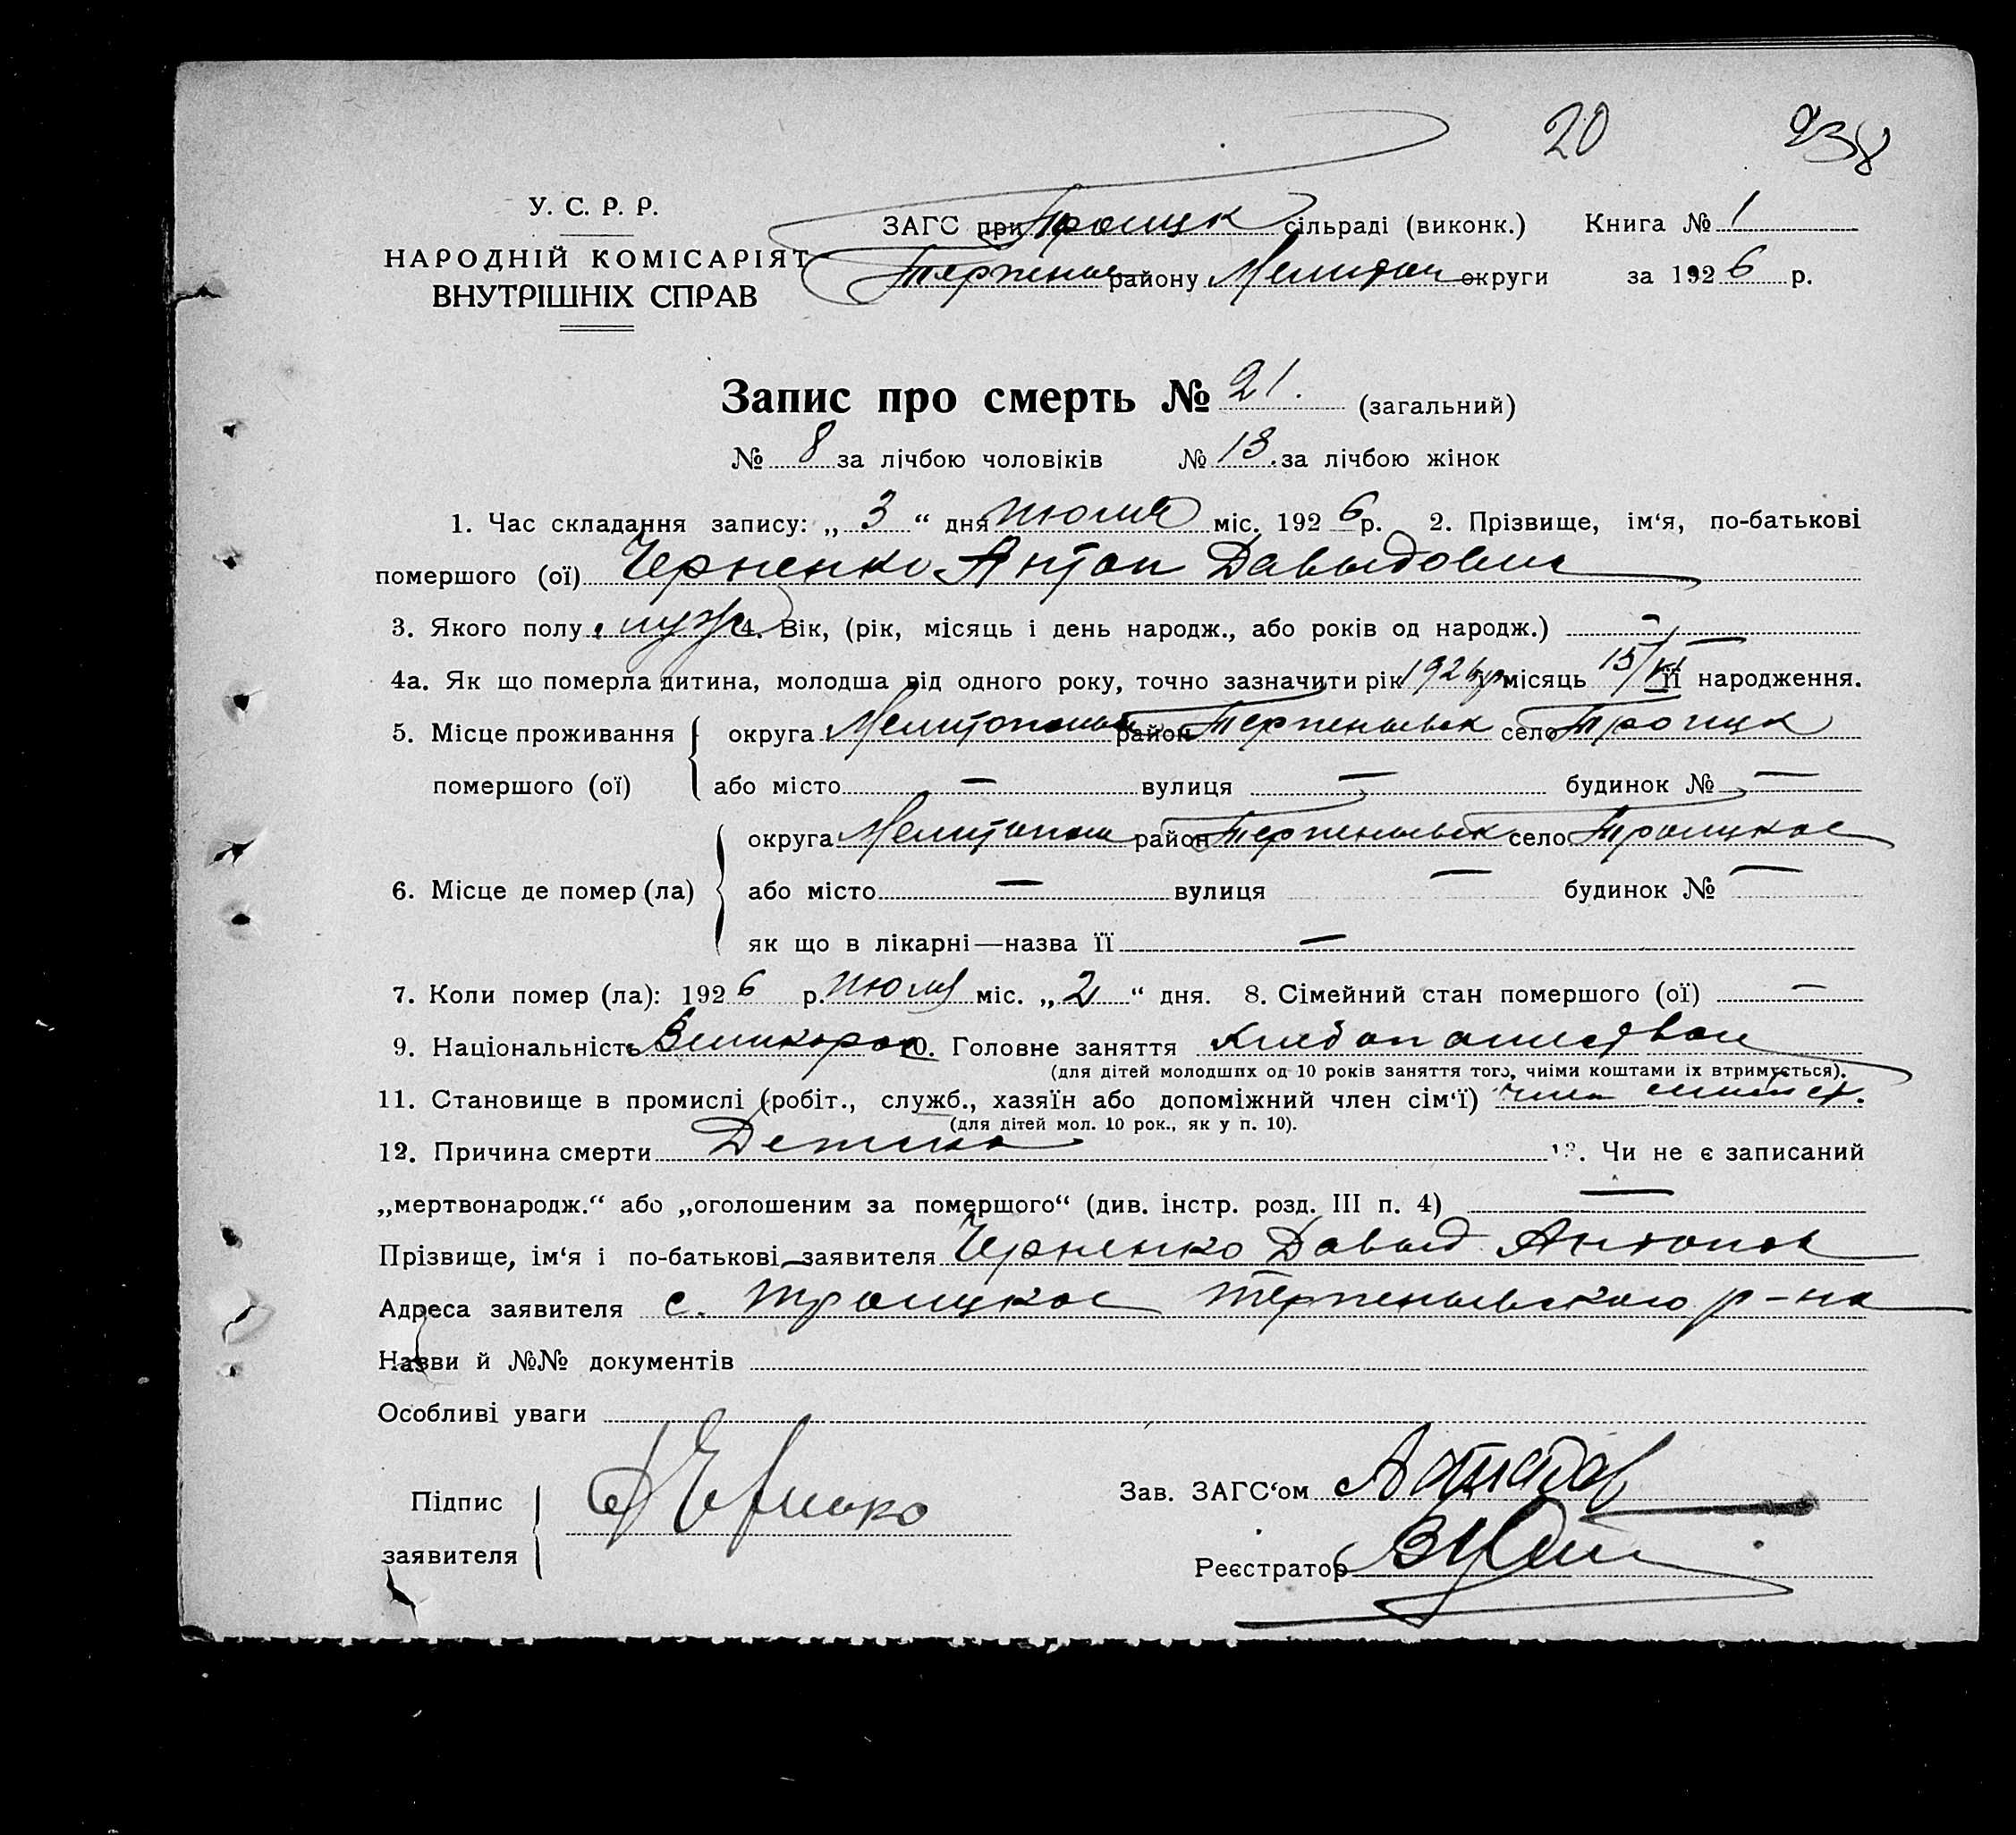 20 238
У. С. Р. Р.
НАРОДНІЙ КОМІСАРІЯТ
ВНУТРІШНІХ СПРАВ
ЗАГС при Троицк сільраді (виконк.) Книга № 1
Терпеньев району Мелитоп округи за 1926 р.
Запис про смерть № 21. (загальний)
№ 8 за лічбою чоловіків № 13. за лічбою жінок
1. Час складання запису: „3“ дня июля міс. 1926 р. 2. Прізвище, ім‘я, по-батькові
помершого (ої) Черненко Антон Давыдович
3. Якого полу муж 4. Вік, (рік, місяць і день народж., або років од народж.) —
4а. Як що померла дитина, молодша від одного року, точно зазначити рік 1926 місяць 15/ її народження.
5. Місце проживання округа Мелитопольск район Терпеньевск село Троицк
помершого (ої) або місто — вулиця — будинок № —
округа Мелитопол район Терпеньевск село Троицкое
6. Місце де помер (ла) або місто — вулиця — будинок № —
як що в лікарні—назва її —
7. Коли помер (ла): 1926 р. июля міс. „2“ дня. 8. Сімейний стан помершого (ої) —
9. Національність Великорос 10. Головне заняття хлебопашество
(для дітей молодших од 10 років заняття того, чиїми коштами їх втримується).
11. Становище в промислі (робіт., служб., хазяїн або допоміжний член сім‘ї) член
(для дітей мол. 10 рок., як у п. 10).
12. Причина смерти 13. Чи не є записаний
„мертвонародж.“ або „оголошеним за померщого“ (див. інстр. розд. III п. 4) —
Прізвище, ім‘я і по-батькові заявителя Черненко Давыд Антонов
Адреса заявителя с. Троицкое Терпеньевского р-на
Назви й №№ документів
Особливі уваги
Підпис
заявителя
Зав. ЗАГС‘ом
Реєстратор